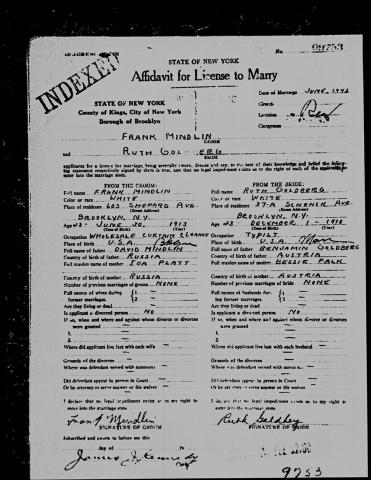 No. 09753
STATE OF NEW YORK
INDEXED
Affidavit for License to Marry
Date of Marriage JUNE, 1942
STATE OF NEW YORK
County of Kings, City of New York
Borough of Brooklyn
Church
Location
Congregation
FRANK MINDLIN
GROOM
and RUTH GOLDBERG
BRIDE
applicants for a license for marriage, being severally sworn, depose and say, to the best of their knowledge and belief the following
statement respectively signed by them is true, and that no legal impediment exists as to the right of each of the applicants to
enter into the marriage state.
FROM THE GROOM:
Full name FRANK MINDLIN
Color or race WHITE
Place of residence 603 SHEPARD AVE.
(Street Address)
BROOKLYN, N.Y.
Age 28 - JUNE 20, 1913
Occupation WHOLESALE CURTAIN CLEANER
Place of birth U.S.A.
Full name of father DAVID MINDLIN
Country of birth of father RUSSIA
Full maiden name of mother IDA PLATT
Country of birth of mother RUSSIA
Number of previous marriages of groom NONE
Full names of wives during 1
former marriages. 2
Are they living or dead
Is applicant a divorced person NO
If so, when and where and against whom divorce or divorces
were granted
1.
2.
Where did applicant live last with each wife
Grounds of the divorces
Where was defendant served with summons
Did defendant appear in person in Court
Or by attorney or serve answer or file waiver
I declare that no legal impediment exists as to my right to
enter into the marriage state.
Frank Mindlin
SIGNATURE OF GROOM
FROM THE BRIDE:
Full name RUTH GOLDBERG
Color or race WHITE
Place of residence 27-A SCHENCK AVE.
(Street Address)
BROOKLYN, N.Y.
Age 23 - DECEMBER 1 - 1918
Occupation TYPIST.
Place of birth U.S.A.
Full name of father BENJAMIN GOLDBERG
Country of birth of father AUSTRIA
Full maiden name of mother BESSIE FALK
Country of birth of mother AUSTRIA
Number of previous marriages of bride NONE
Full names of husbands during 1
former marriages. 2
Are they living or dead
Is applicant a divorced person NO.
If so, when and where and against whom divorce or divorces
were granted
1.
2.
Where did applicant live last with each husband
Grounds of the divorces
Where was defendant served with summons
Did defendant appear in person in Court
Or by attorney or serve answer or file waiver
I declare that no legal impediment exists as to my right to
enter into the marriage state.
Ruth Goldberg
SIGNATURE OF BRIDE
Subscribed and sworn to before me this
day of
James J. Kennedy
9753